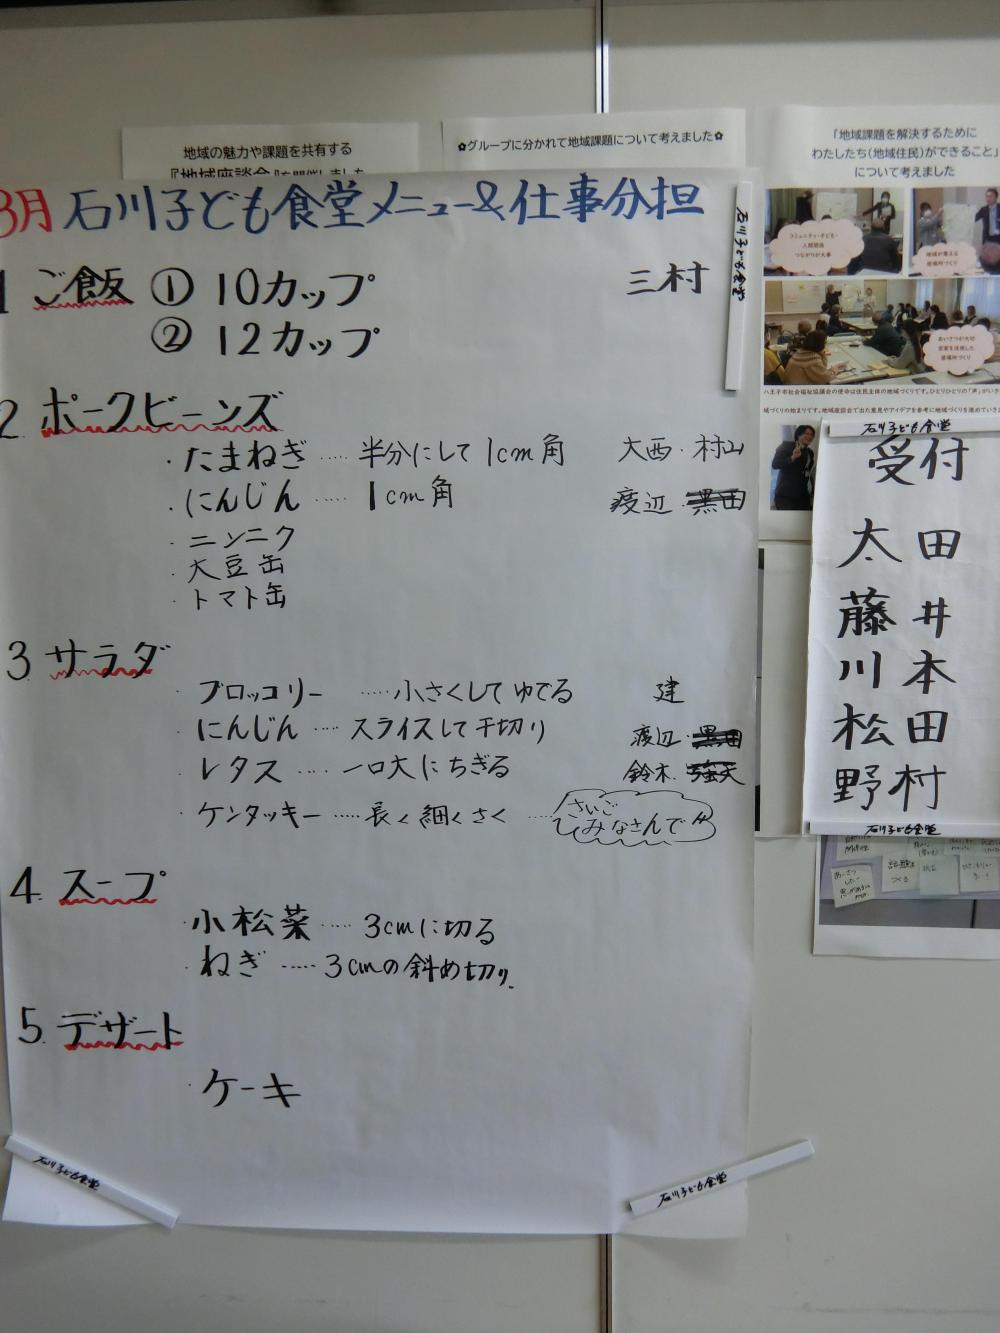 地域の魅力や課題を共有する
✿グループに分かれて地域課題について考えました✿
「地域課題を解決するために
わたしたち(地域住民)ができること」
について考えました
コミュニティ・子ども・
人間関係
つながりが大事
地域が集える
居場所づくり
あいさつが大切
空家を活用した
居場所づくり
3月 石川子ども食堂メニュー&仕事分担
石川子ども食堂
1 ご飯 ① 10カップ 三村
② 12カップ
2 ポークビーンズ
・たまねぎ ‥‥ 半分にして 1cm角 大西・村山
・にんじん ‥‥ 1cm角 渡辺・黒田
・ニンニク
・大豆缶
・トマト缶
3 サラダ
・ブロッコリー ‥‥小さくして ゆでる 建
・にんじん ‥‥ スライスして千切り 渡辺・黒田
・レタス ‥‥ 一口大にちぎる 鈴木・
・ケンタッキー ‥‥長く細くさく ‥‥ さいご
みなさんで
4. スープ
・小松菜 ‥‥ 3cmに切る
・ねぎ ‥‥ 3cmの斜め切り
5. デザート
・ケーキ
石川子ども食堂
石川子ども食堂
石川子ども食堂
受付
太田
藤井
川本
松田
野村
石川子ども食堂